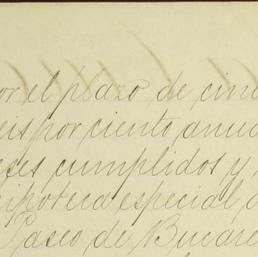 or el plazo de cinc
eis por ciento anua
eses cumplidos y
hipoteca especial d
Paseo de Bucare